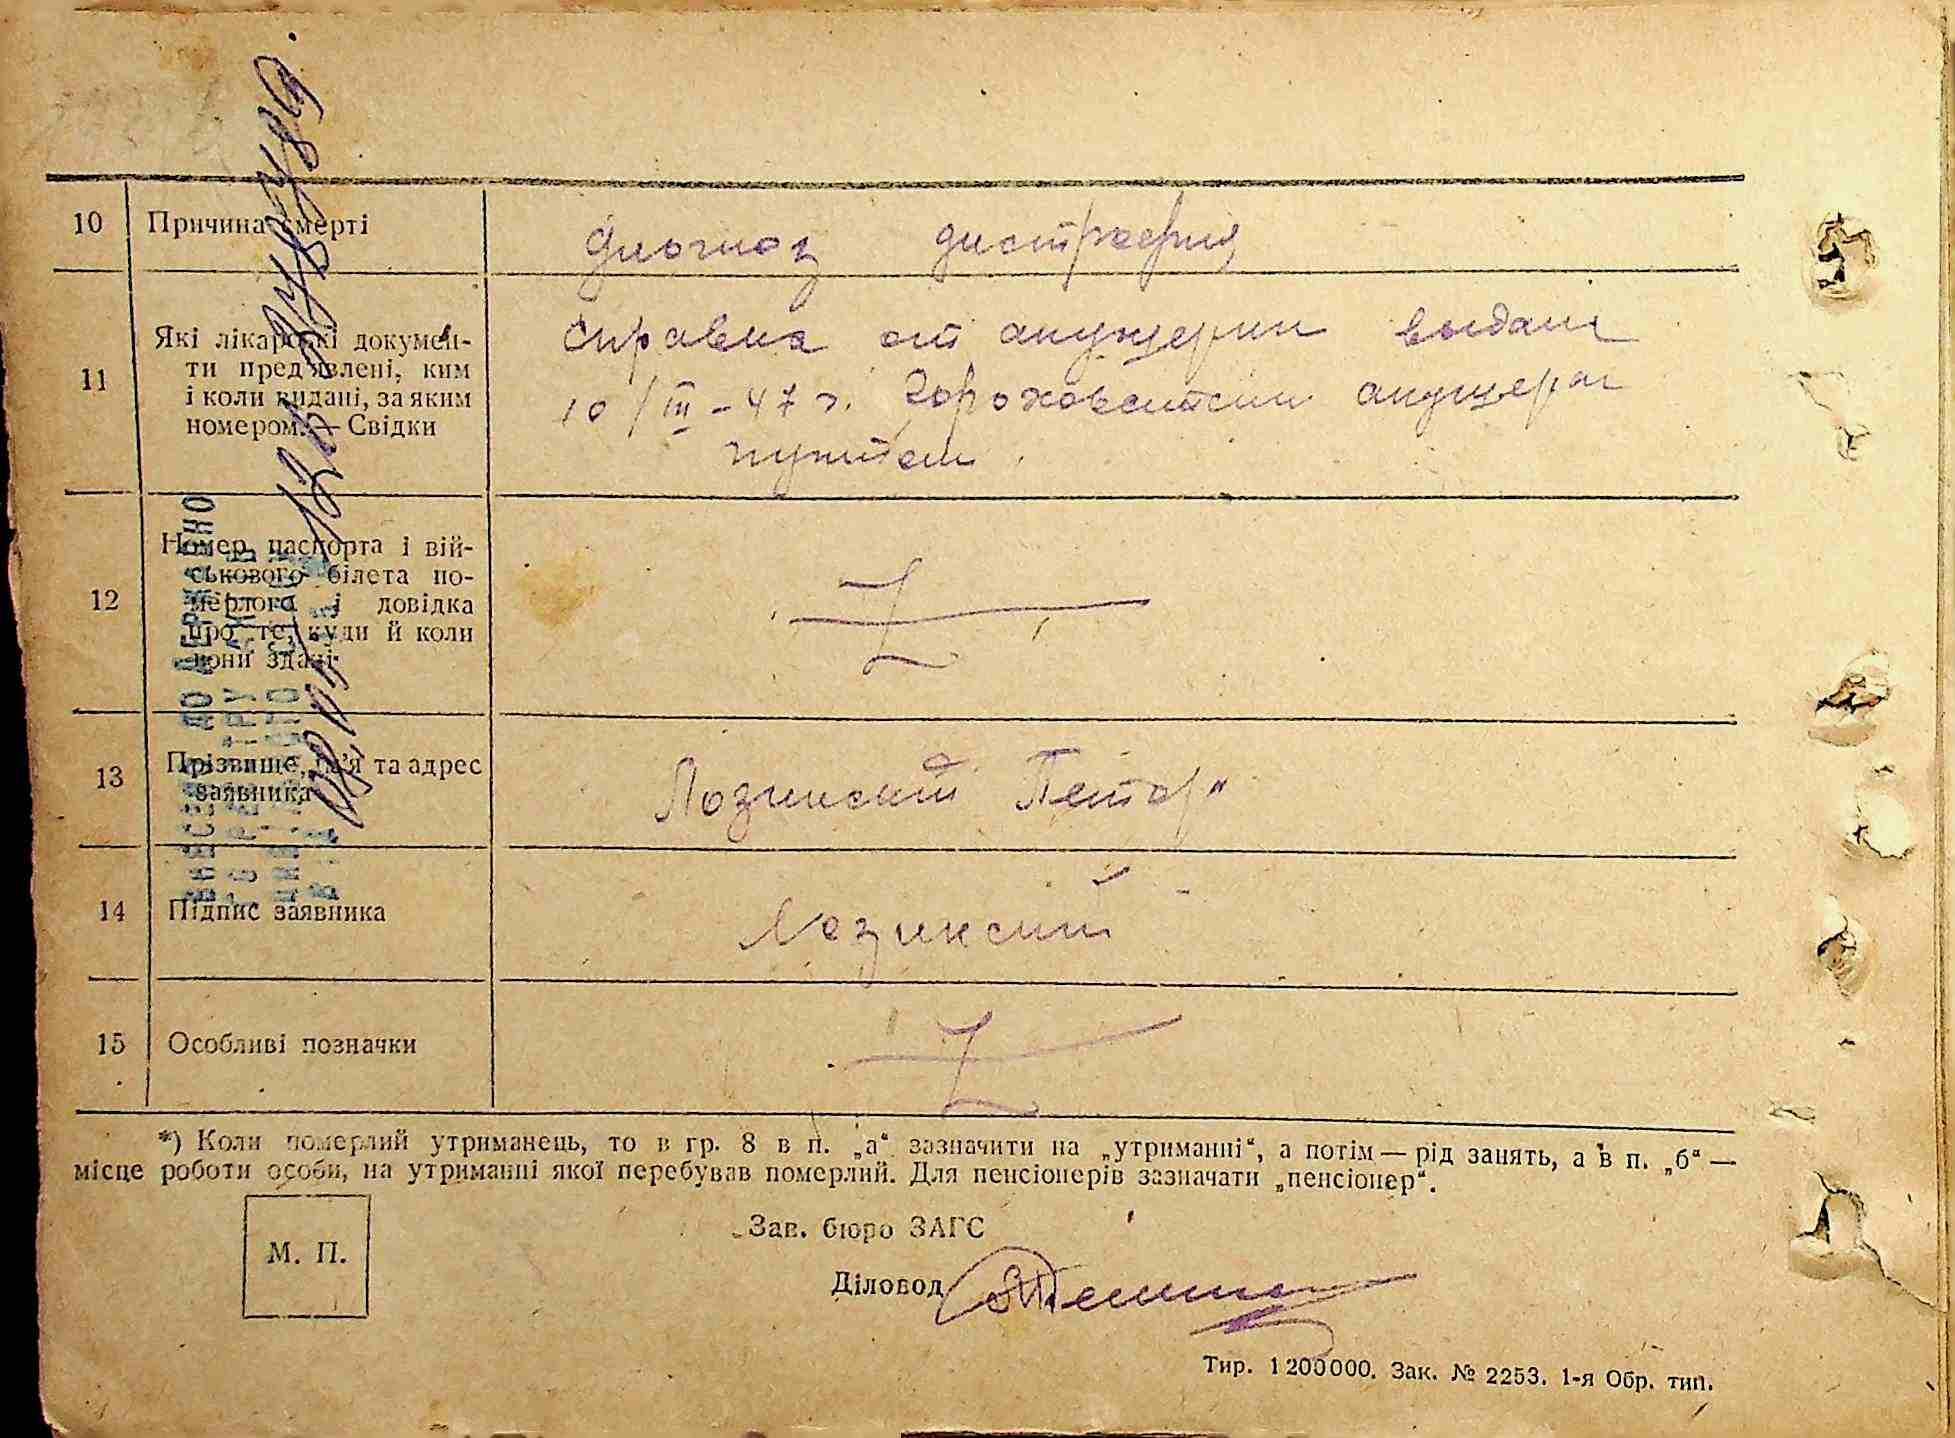 10 Причина смерті
диагноз дистрофия
11 Які лікарські докумен-
ти пред'явлені, ким
і коли видані, за яким
номером. — Свідки
Справка от акушерки выдана
10/III-47 г. акушерск
пунктом.
12 Номер паспорта і вій-
ськового білета по-
мерлого і довідка
про те, куди й коли
вони здані
Z
13 Прізвище, ім'я та адрес
заявника
Лозинский Петор
14 Підпис заявника
Лозинский
15 Особливі позначки
Z
ВНЕСЕНО ДО ДЕРЖАВНО
*) Коли померлий утриманець, то в гр. 8 в п. „а“ зазначити на „утриманні“, а потім — рід занять, а в п. „б“ —
місце роботи особи, на утриманні якої перебував померлий. Для пенсіонерів зазначати „пенсіонер“.
М. П.
Зав. бюро ЗАГС
Діловод
Тир. 1200000. Зак. № 2253. 1-я Обр. тип.